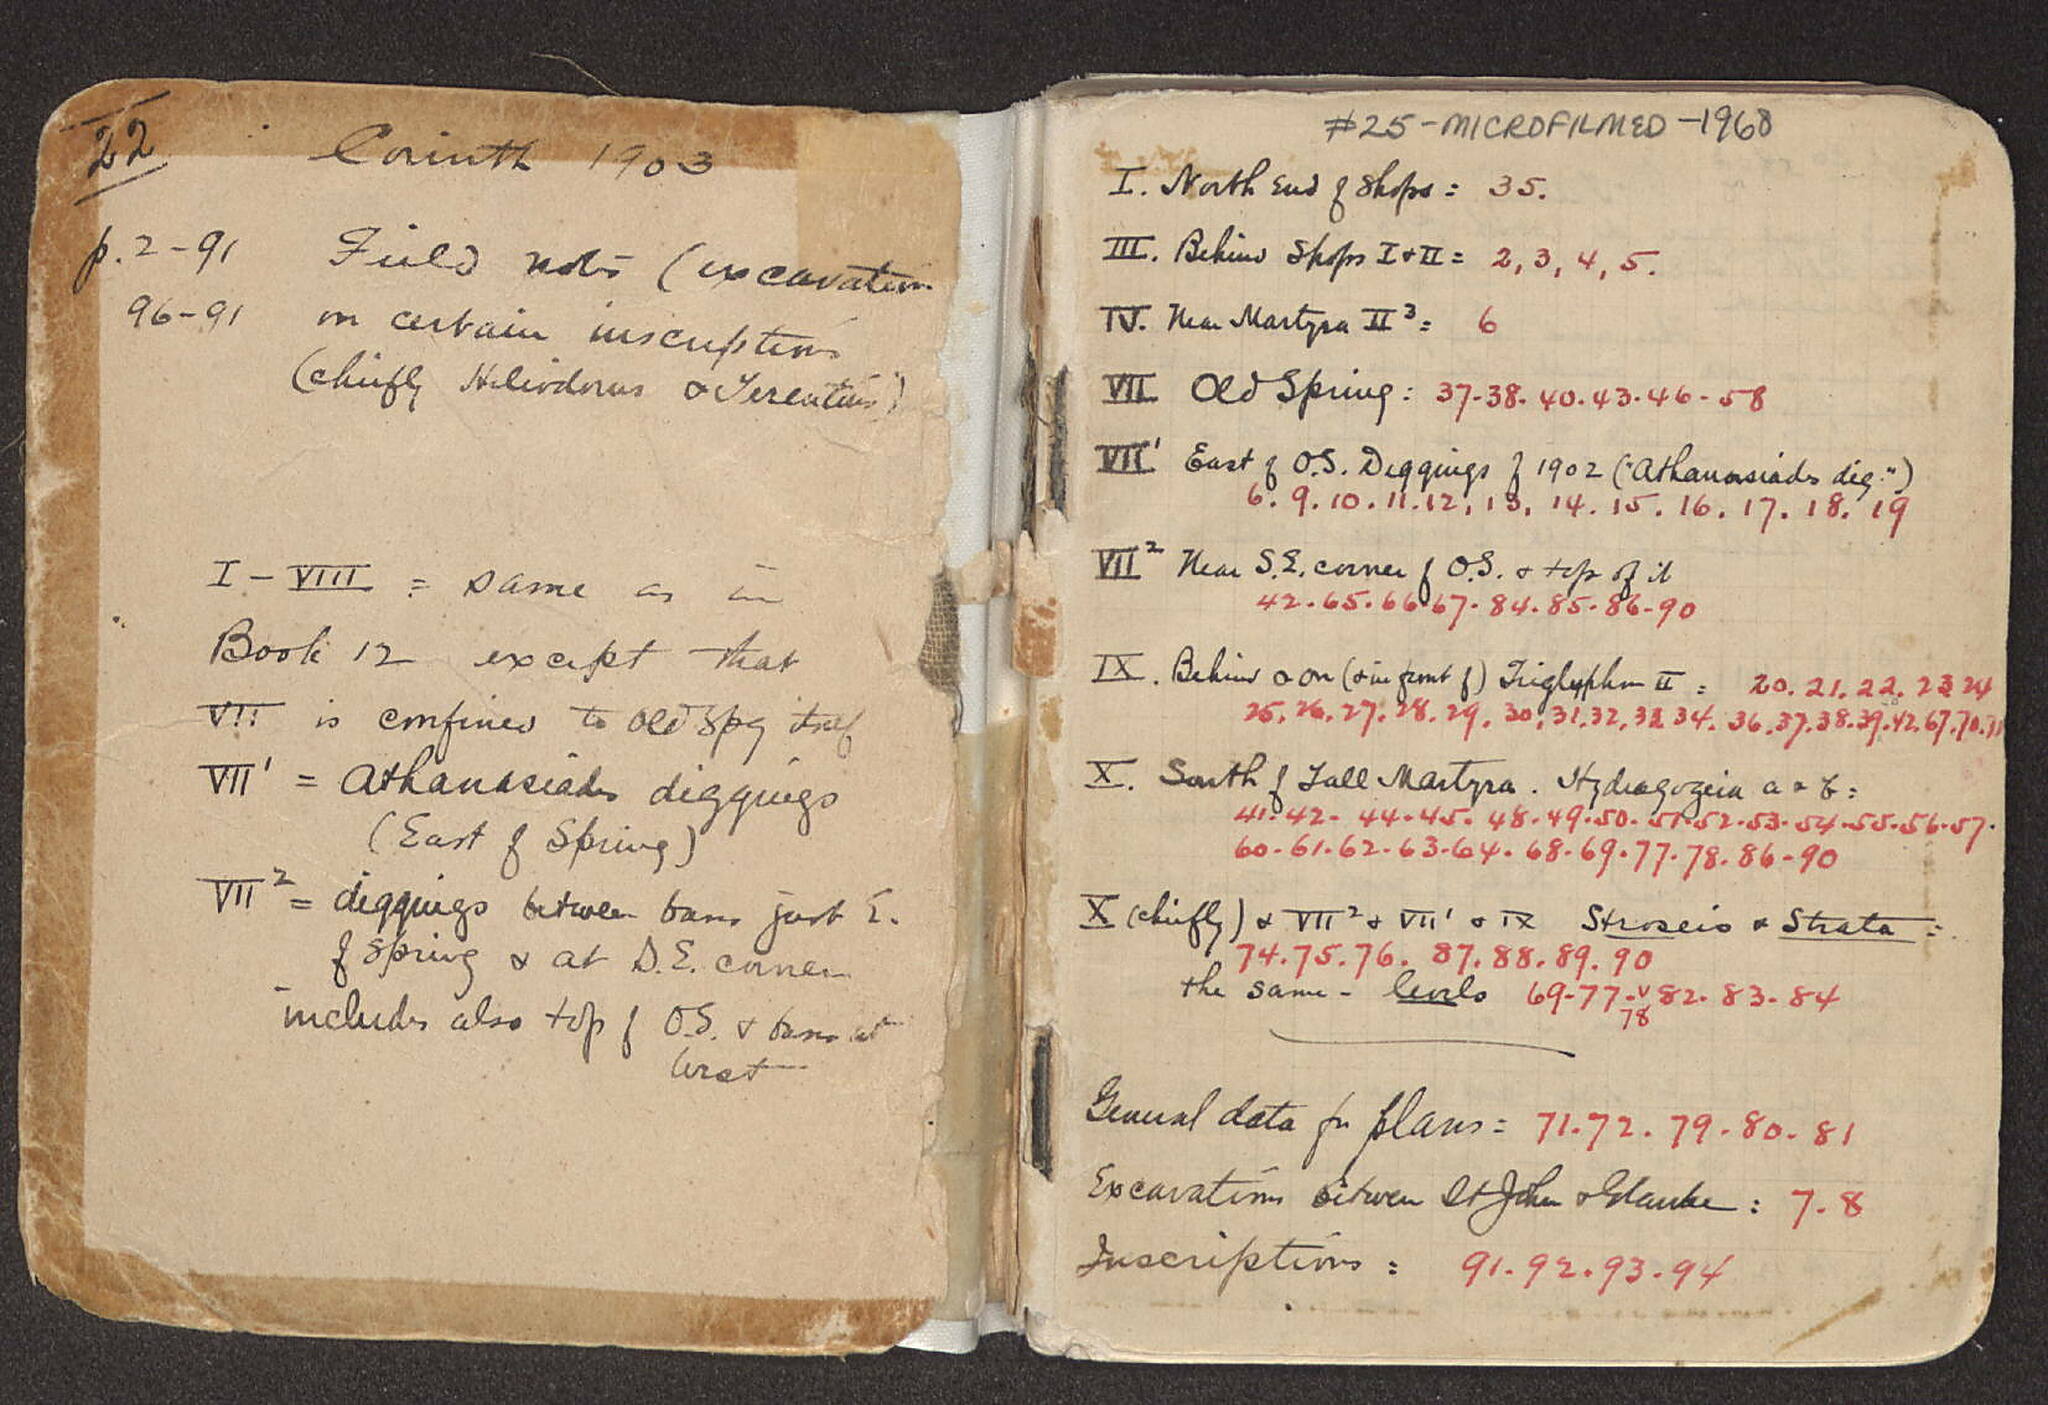 22
Corinth 1903
p. 2-91 Field notes (excavation
96-91 on certain inscriptions
(chiefly Heliodorus & Terentius)
I - VIII = same as in
Book 12 except that
VII is confined to Old Spg itself
VII' = Athanasiades diggings
(East of Spring)
VII² = diggings between bans just E.
of Spring & at S.E. corner
includes also top of O.S. & bans at
West
#25-MICROFILMED-1968
I. North End of Shops = 35.
III. Behind Shops I & II = 2, 3, 4, 5.
IV. Near Martyra II³ = 6
VII Old Spring: 37-38. 40. 43. 46 - 58
VII' East of O.S. Diggings of 1902 ("Athanasiades dig.")
6. 9. 10. 11. 12, 13, 14. 15. 16. 17. 18. 19
VII² Near S.E. corner of O.S. & top of it
42. 65. 66. 67. 84. 85. 86-90
IX. Behind & on (& in front of) Triglyphon II = 20. 21. 22. 23 24
25. 26. 27. 28. 29. 30. 31. 32. 33 34. 36. 37. 38. 39. 42. 67. 70. 71
X. South of Tall Martyra. Hydragogeia a & b =
41. 42. 44. 45. 48. 49. 50. 51. 52. 53. 54. 55. 56. 57.
60. 61. 62. 63. 64. 68. 69. 77. 78. 86-90
X (chiefly) & VII² & VII' & IX Stroseis & Strata =
74. 75. 76. 87. 88. 89. 90
the same - levels 69-77. 82. 83. 84
78
General data for plans = 71. 72. 79. 80. 81
Excavations between St John & Glauke: 7. 8
Inscriptions: 91. 92. 93. 94